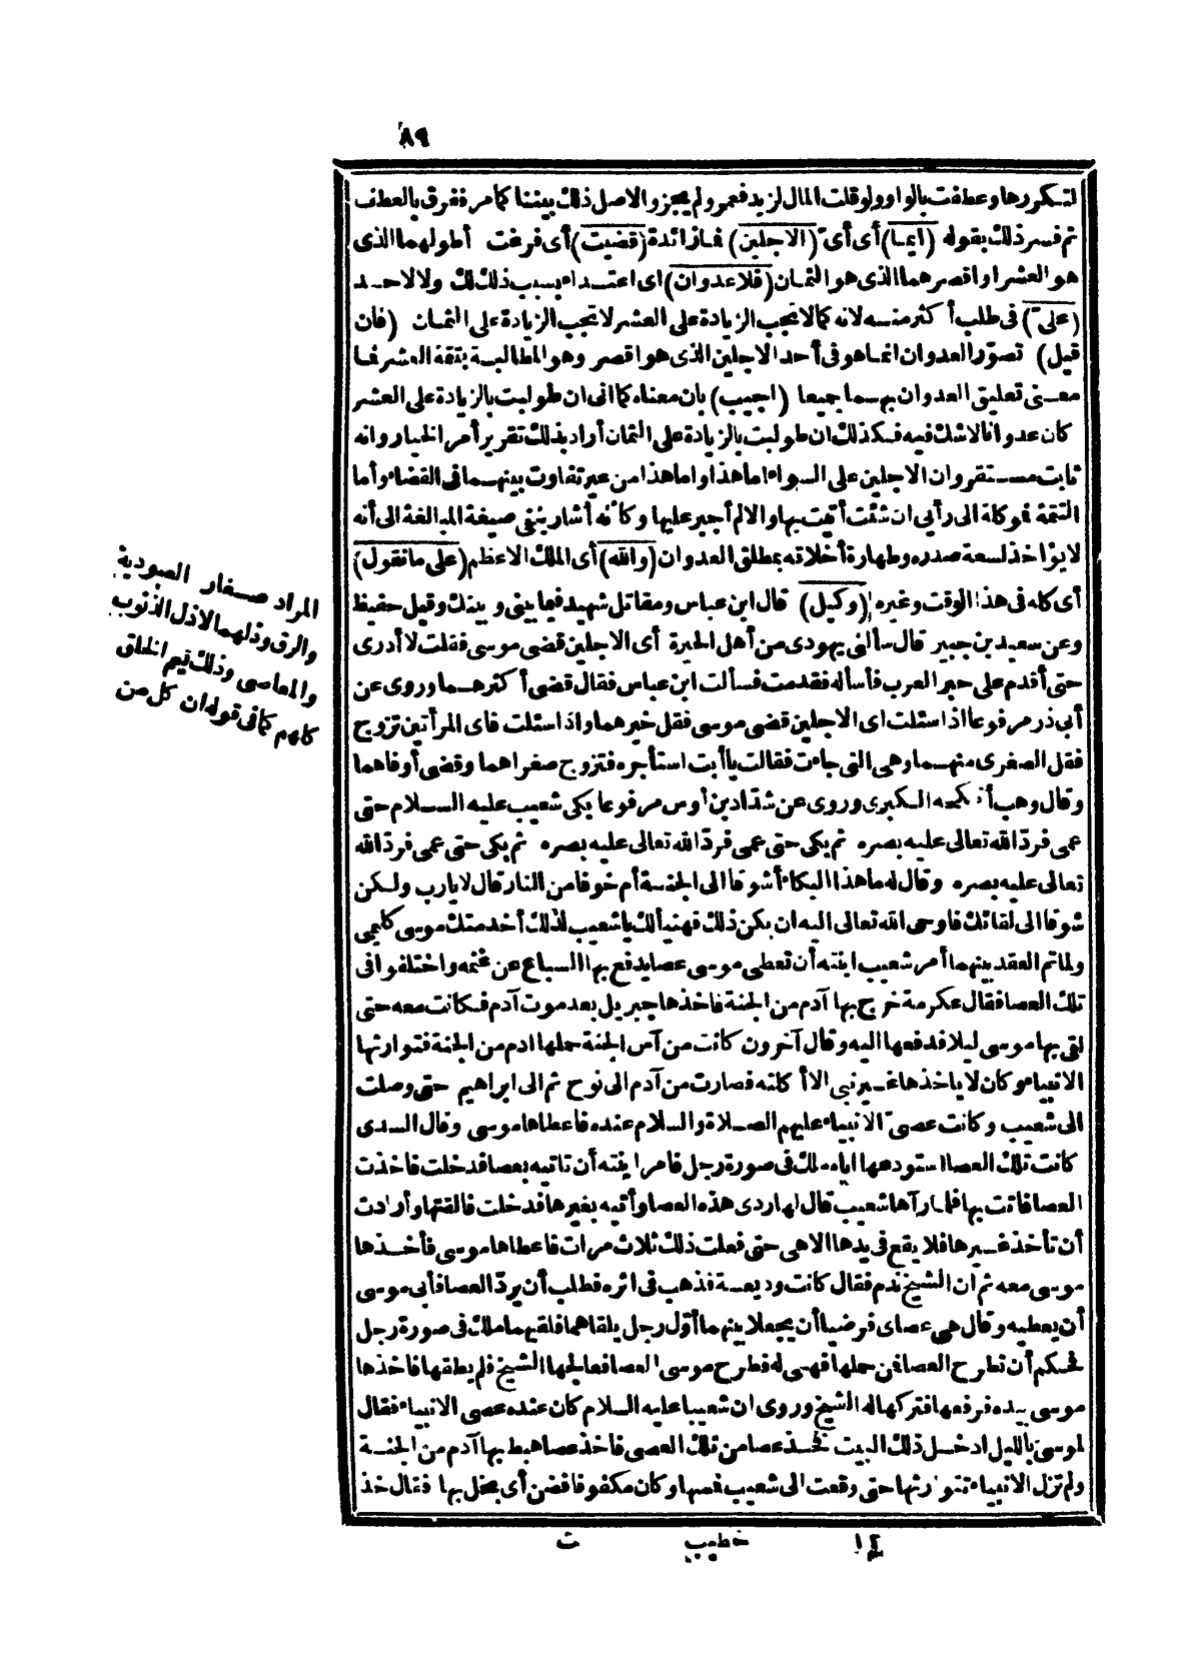 ٨٩
لتكررها وعطفت بالواو ولو قلت المال لزيد فعمرو لم يجز والاصل ذلك بيننا كما مر ففرق بالعطف
ثم فسر ذلك بقوله (أيما) أى أىّ (الاجلين) فما زائدة (قضيت) أى فرغت أطولهما الذى
هو العشر أو أقصرهما الذى هو الثمان (فلا عدوان) أى اعتداء بسبب ذلك لك ولا لاحد
(علىّ) فى طلب أكثر منه لانه كما لا تجب الزيادة على العشر لا تجب الزيادة على الثمان (فان
قيل) تصوّر العدوان انما هو فى أحد الاجلين الذى هو اقصر وهو المطالبة بتتمة العشر فما
معنى تعليق العدوان بهما جميعا (أجيب) بان معناه كما انى ان طولبت بالزيادة على العشر
كان عدوانا لا شك فيه فكذلك ان طولبت بالزيادة على الثمان أراد بذلك تقرير أمر الخيار وانه
ثابت مستقر وان الاجلين على السواء اما هذا واما هذا من غير تفاوت بينهما فى القضاء وأما
التتمة فموكلة الى رأيى ان شئت أتيت بها والا لم أجبر عليها وكأنه أشار بنفى صيغة المبالغة الى أنه
لا يؤاخذ لسعة صدره وطهارة أخلاقه بمطلق العدوان (والله) أى الملك الاعظم (على ما نقول)
أى كله فى هذا الوقت وغيره (وكيل) قال ابن عباس ومقاتل شهيد فيما بينى وبينك وقيل حفيظ
وعن سعيد بن جبير قال سألنى يهودى من أهل الحيرة أى الاجلين قضى موسى فقلت لا أدرى
حتى أقدم على حبر العرب فأسأله فقدمت فسألت ابن عباس فقال قضى أكثرهما وروى عن
أبى ذر مرفوعا اذا سئلت اى الاجلين قضى موسى فقل خيرهما واذا سئلت فاى المرأتين تزوج
فقل الصغرى منهما وهى التى جاءت فقالت يا أبت استأجره فتزوج صغراهما وقضى أوفاهما
وقال وهب أنكحه الكبرى وروى عن شدّاد بن أوس مرفوعا بكى شعيب عليه السلام حتى
عمى فردّ الله تعالى عليه بصره ثم بكى حتى عمى فردّ الله تعالى عليه بصره ثم بكى حتى عمى فردّ الله
تعالى عليه بصره وقال له ما هذا البكاء أشوقا الى الجنة أم خوفا من النار قال لا يارب ولكن
شوقا الى لقائك فاوحى الله تعالى اليه ان يكن ذلك فهنيأ لك يا شعيب لذلك أخدمتك موسى كليمى
ولما تم العقد بينهما أمر شعيب ابنته أن تعطى موسى عصا يدفع بها السباع عن غنمه واختلفوا فى
تلك العصا فقال عكرمة خرج بها آدم من الجنة فاخذها جبريل بعد موت آدم فكانت معه حتى
لقى بها موسى ليلا فدفعها اليه وقال آخرون كانت من آس الجنة حملها ادم من الجنة فتوارثها
الانبياء وكان لا ياخذها غير نبى الا أكلته فصارت من آدم الى نوح ثم الى ابراهيم حتى وصلت
الى شعيب وكانت عصىّ الانبياء عليهم الصلاة والسلام عنده فاعطاها موسى وقال السدى
كانت تلك العصا استودعها اياه ملك فى صورة رجل فامر ابنته أن تاتيه بعصا فدخلت فاخذت
العصا فاتت بها فلما رآها شعيب قال لها ردى هذه العصا وأتيه بغيرها فدخلت فالقتها وأرادت
أن تأخذ غيرها فلا يقع فى يدها الا هى حتى فعلت ذلك ثلاث مرات فاعطاها موسى فأخذها
موسى معه ثم ان الشيخ ندم فقال كانت وديعة فذهب فى اثره فطلب أن يردّ العصا فأبى موسى
أن يعطيه وقال هى عصاى فرضيا أن يجعلا بينهما أوّل رجل يلقاهما فلقيهما ملك فى صورة رجل
فحكم أن تطرح العصا فمن حملها فهى له فطرح موسى العصا فعالجها الشيخ فلم يطقها فاخذها
موسى بيده فرفعها فتركها له الشيخ وروى ان شعيبا عليه السلام كان عنده عصى الانبياء فقال
لموسى بالليل ادخل ذلك البيت فخذ عصا من تلك العصى فاخذ عصا هبط بها آدم من الجنة
ولم تزل الانبياء تتوارثها حتى وقعت الى شعيب فمسها وكان مكفوفا فضن أى بخل بها فقال خذ
المراد صغار العبودية
والرق وذلهما لا ذل الذنوب
والمعاصى وذلك يعم الخلق
كلهم كما فى قوله ان كل من
١٢ خطيب ت